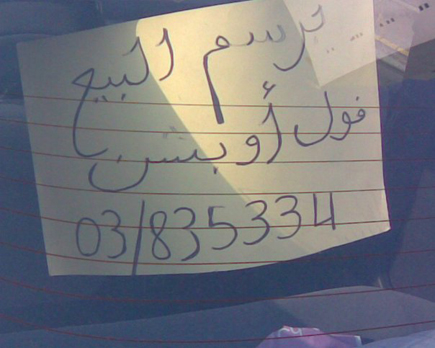 برسم البيع
فول أوبشن
03/835334